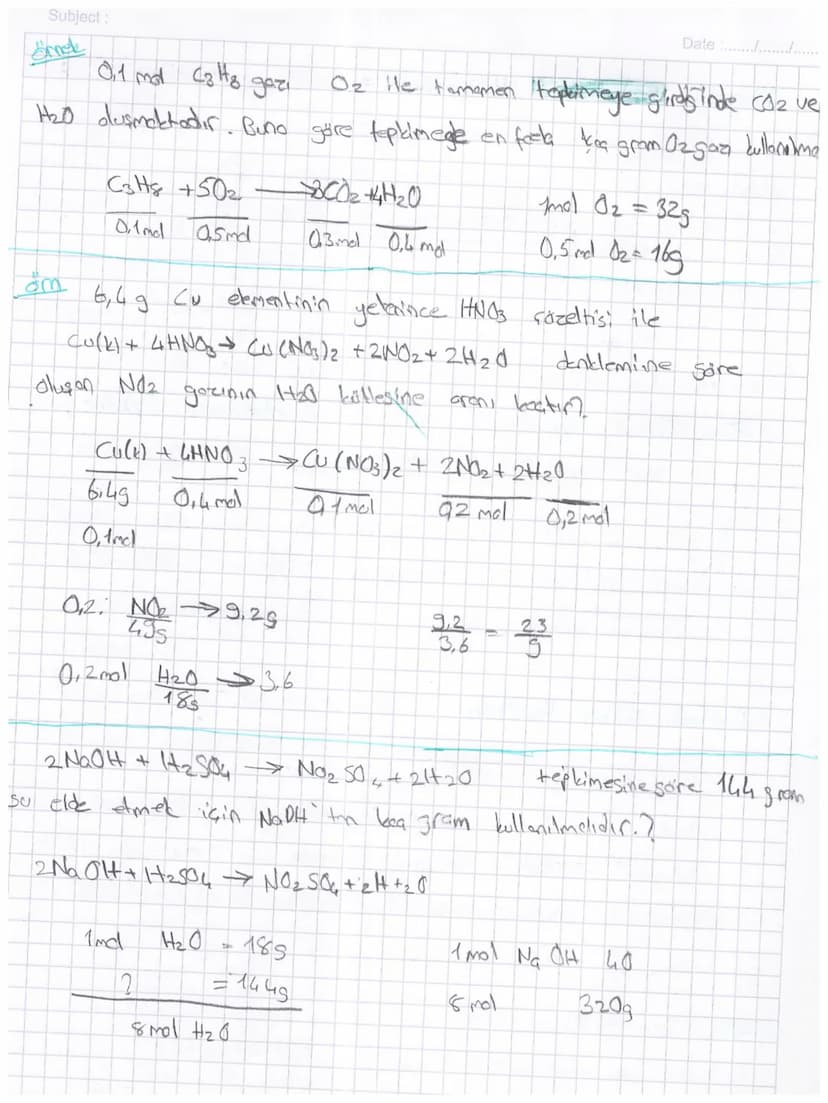 Subject :
Date : ....../....../......
örnek
0,1 mol C3H8 gazı O2 ile tamamen tepkimeye girdiğinde CO2 ve
H2O oluşmaktadır. Buna göre tepkimede en fazla kaç gram O2 gazı kullanılma
C3H8 + 5O2 → 3CO2 + 4H2O
0,1mol 0,5mol 0,3mol 0,4 mol
1mol O2 = 32g
0,5 mol O2 = 16g
örn
6,4 g Cu elementinin yeterince HNO3 çözeltisi ile
Cu(k) + 4HNO3 → Cu(NO3)2 + 2NO2 + 2H2O denklemine göre
oluşan NO2 gazının H2O kütlesine oranı kaçtır?
Cu(k) + 4HNO3 → Cu(NO3)2 + 2NO2 + 2H2O
6,4g 0,4 mol 0,1mol 0,2 mol 0,2 mol
0,1mol
0,2: NO2 → 9,2g
9,2 / 3,6 = 23 / 9
0,2mol H2O → 3,6
18g
2NaOH + H2SO4 → Na2SO4 + 2H2O tepkimesine göre 144 gram
su elde etmek için NaOH'tan kaç gram kullanılmalıdır.?
2NaOH + H2SO4 → NO2SO4 + 2H+2O
1mol H2O = 18g
? = 144g
8 mol H2O
1mol NaOH 40
8 mol 320g